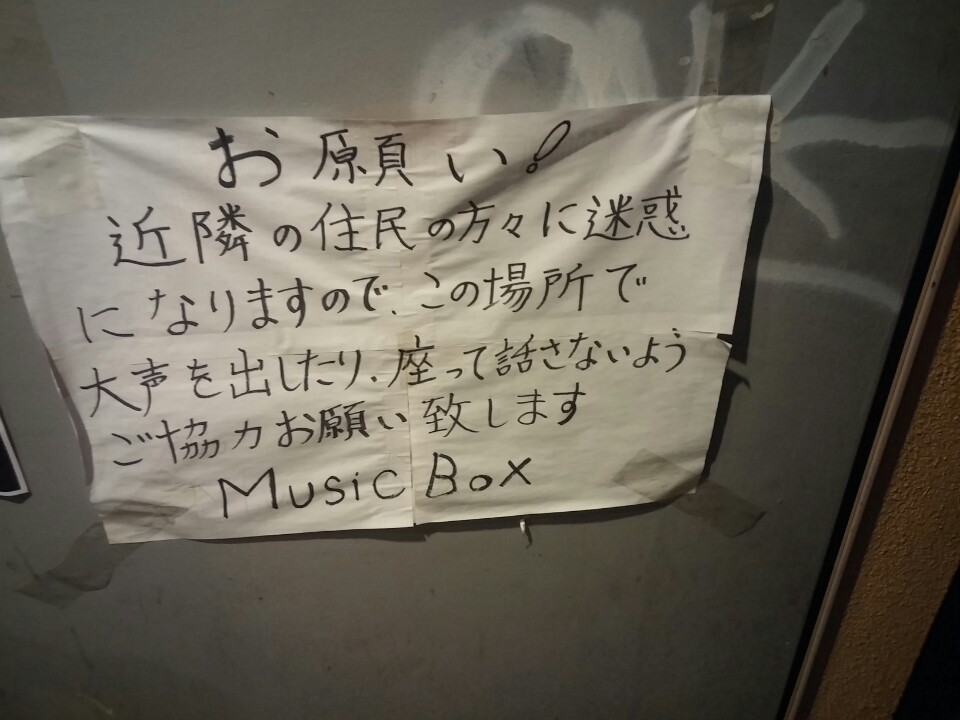 お願い!
近隣の住民の方々に迷惑
になりますので、この場所で
大声を出したり、座って話さないよう
ご協力お願い致します
Music Box